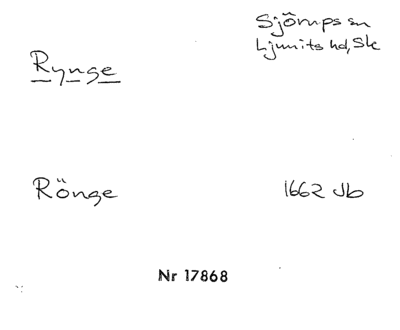 Sjörups sn
Ljunits hd, Sk
Rynge
Rönge
1662 Jb
Nr 17868